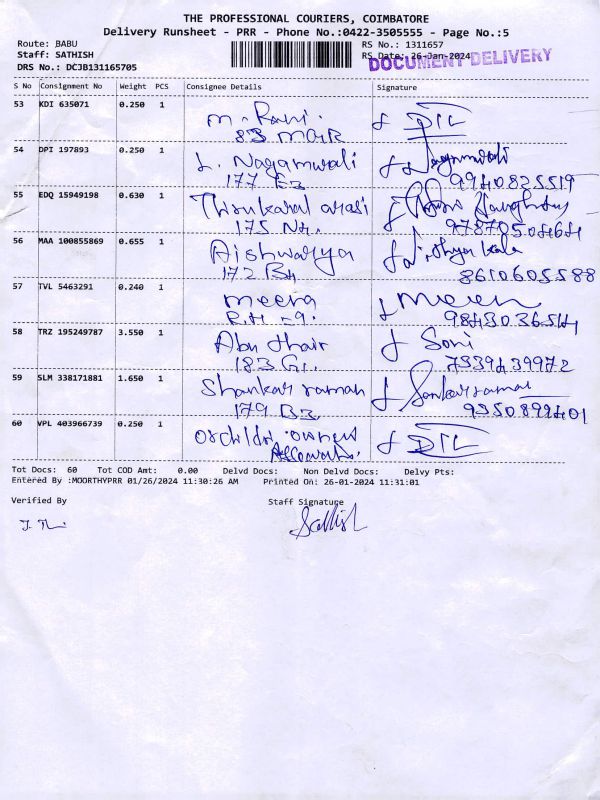 THE PROFESSIONAL COURIERS, COIMBATORE
Delivery Runsheet - PRR - Phone No.:0422-3505555 - Page No.:5
Route: BABU
RS No.: 1311657
Staff: SATHISH
RS Date: 26-Jan-2024
DOCUMENT DELIVERY
DRS No.: DCJB131165705
S No Consignment No Weight PCS Consignee Details Signature
53 KDI 635071 0.250 1 M. Rani.
83 MGR
54 DPI 197893 0.250 1 L. Nagamvali
177 E2 9940825519
55 EDQ 15949198 0.630 1 Thirukaral arasi
175 N4.
56 MAA 100855869 0.655 1 Aishwarya
172 B4 8610605588
57 TVL 5463291 0.240 1 meera Meera
R.H -9.
58 TRZ 195249787 3.550 1 Abu thair Soni
183 G1. 7339439972
59 SLM 338171881 1.650 1 Shankar raman Sankarraman
179 B3 9350899401
60 VPL 403966739 0.250 1 owners
Tot Docs: 60 Tot COD Amt: 0.00 Delvd Docs: Non Delvd Docs: Delvy Pts:
Entered By :MOORTHYPRR 01/26/2024 11:30:26 AM Printed On: 26-01-2024 11:31:01
Verified By Staff Signature
Sathish